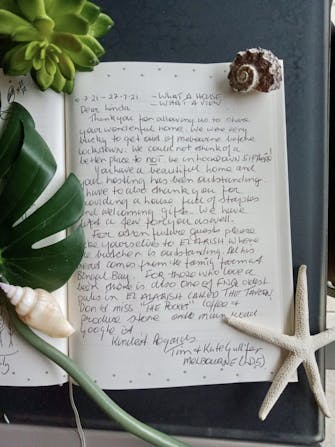 7.21 - 27-7-21 - WHAT A HOUSE
- WHAT A VIEW
Dear Linda.
Thankyou for allowing us to share
your wonderful home. We were very
lucky to get out of melbourne before
lockdown. We could not think of a
better place to NOT be in lockdown
You have a beautiful home and
your hosting has been outstanding
I have to also thank you for
providing a house full of staples
and welcoming gifts. We have
left a few for you as well.
For other future guests please
take yourselves to EL ARISH where
the butcher is outstanding. All his
meat comes from family farm at
Bingil Bay. FOR those who love a
beer there is also one of FNQ oldest
pubs in EL ARISH CALLED THE TAVERN.
Don't miss 'THE POCKET' coffee &
produce store onto main road
Google it
Kindest Regards
Tim & Kate
MELBOURNE